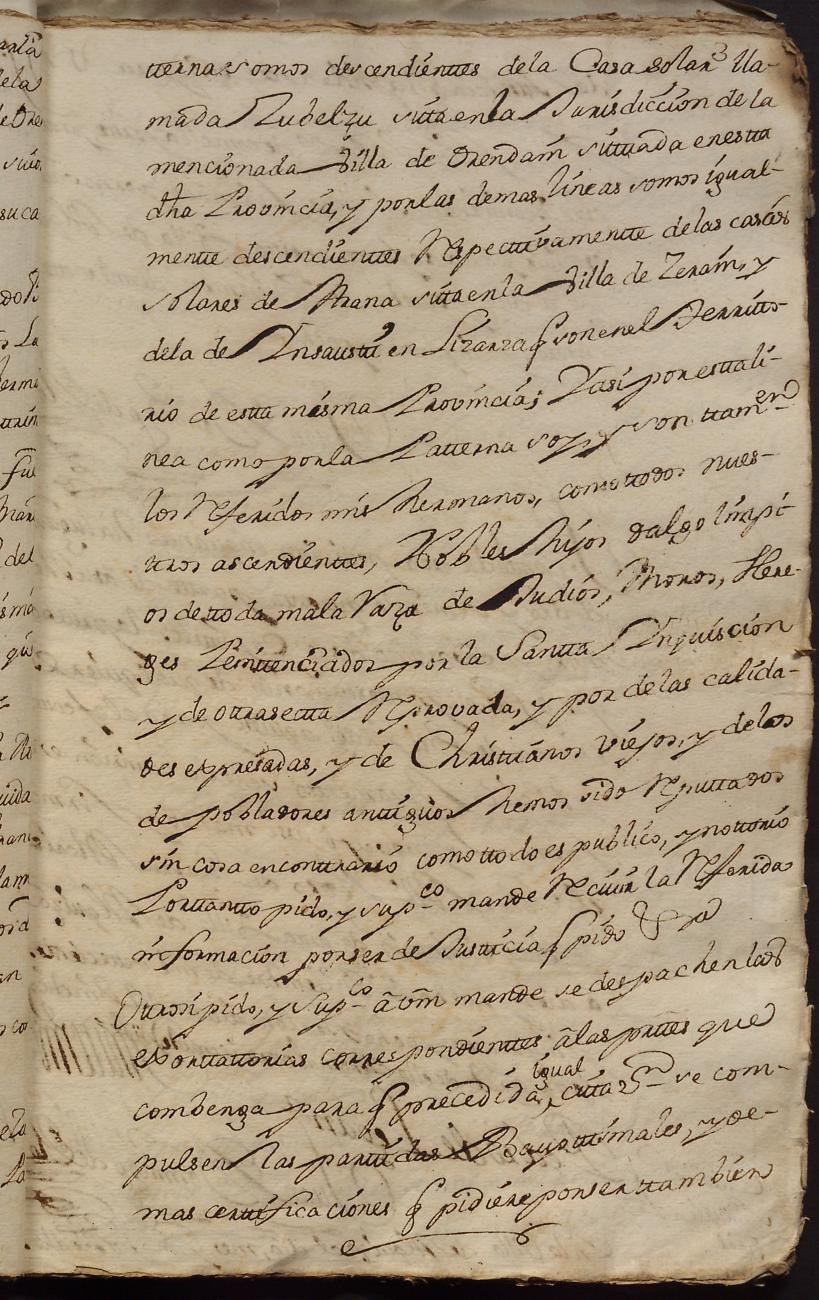 tterna somos descendienttes dela Casa solar lla-
mada Zubelzu sita en la Jurisdiccion de la
mencionada Billa de Orendain sittuada en estta
dha Provincia, y por las demas lineas somos igual-
mentte descendienttes Respecttivamentte delas casas
solares de Arana sita en la Billa de Zerain, y
dela de Insausti en Lizarza q son en el Territto-
rio de esta misma Provincia; Y asi por estta li-
nea como por la Patterna soy, y son ttamvien
los Referidos mis hermanos, como ttodos nues-
ttros ascendienttes, Nobles hijos dalgo limpi-
os de ttoda mala Raza de Judios, Moros, Here-
ges Penittenciados por la Santta Inquisicion
y de ottra sectta Reprovada, y por de las calida-
des expresadas, y de Christianos viejos, y delos
de pobladores anttiguos hemos sido Reputtados
sin cosa en conttrario como ttodo es publico, y nottorio
Por tantto pido, y supco mande Recivir la Referida
informacion por ser de Justicia q pido &a
Ottrosi pido, y Supco a Vm mande se despachen las
exorttattorias correspondienttes a las parttes que
combenga para q precedida igual citta on se com-
pulsen las parttidas Bauttismales, y de-
mas certtificaciones q pidiere por ser ttambien